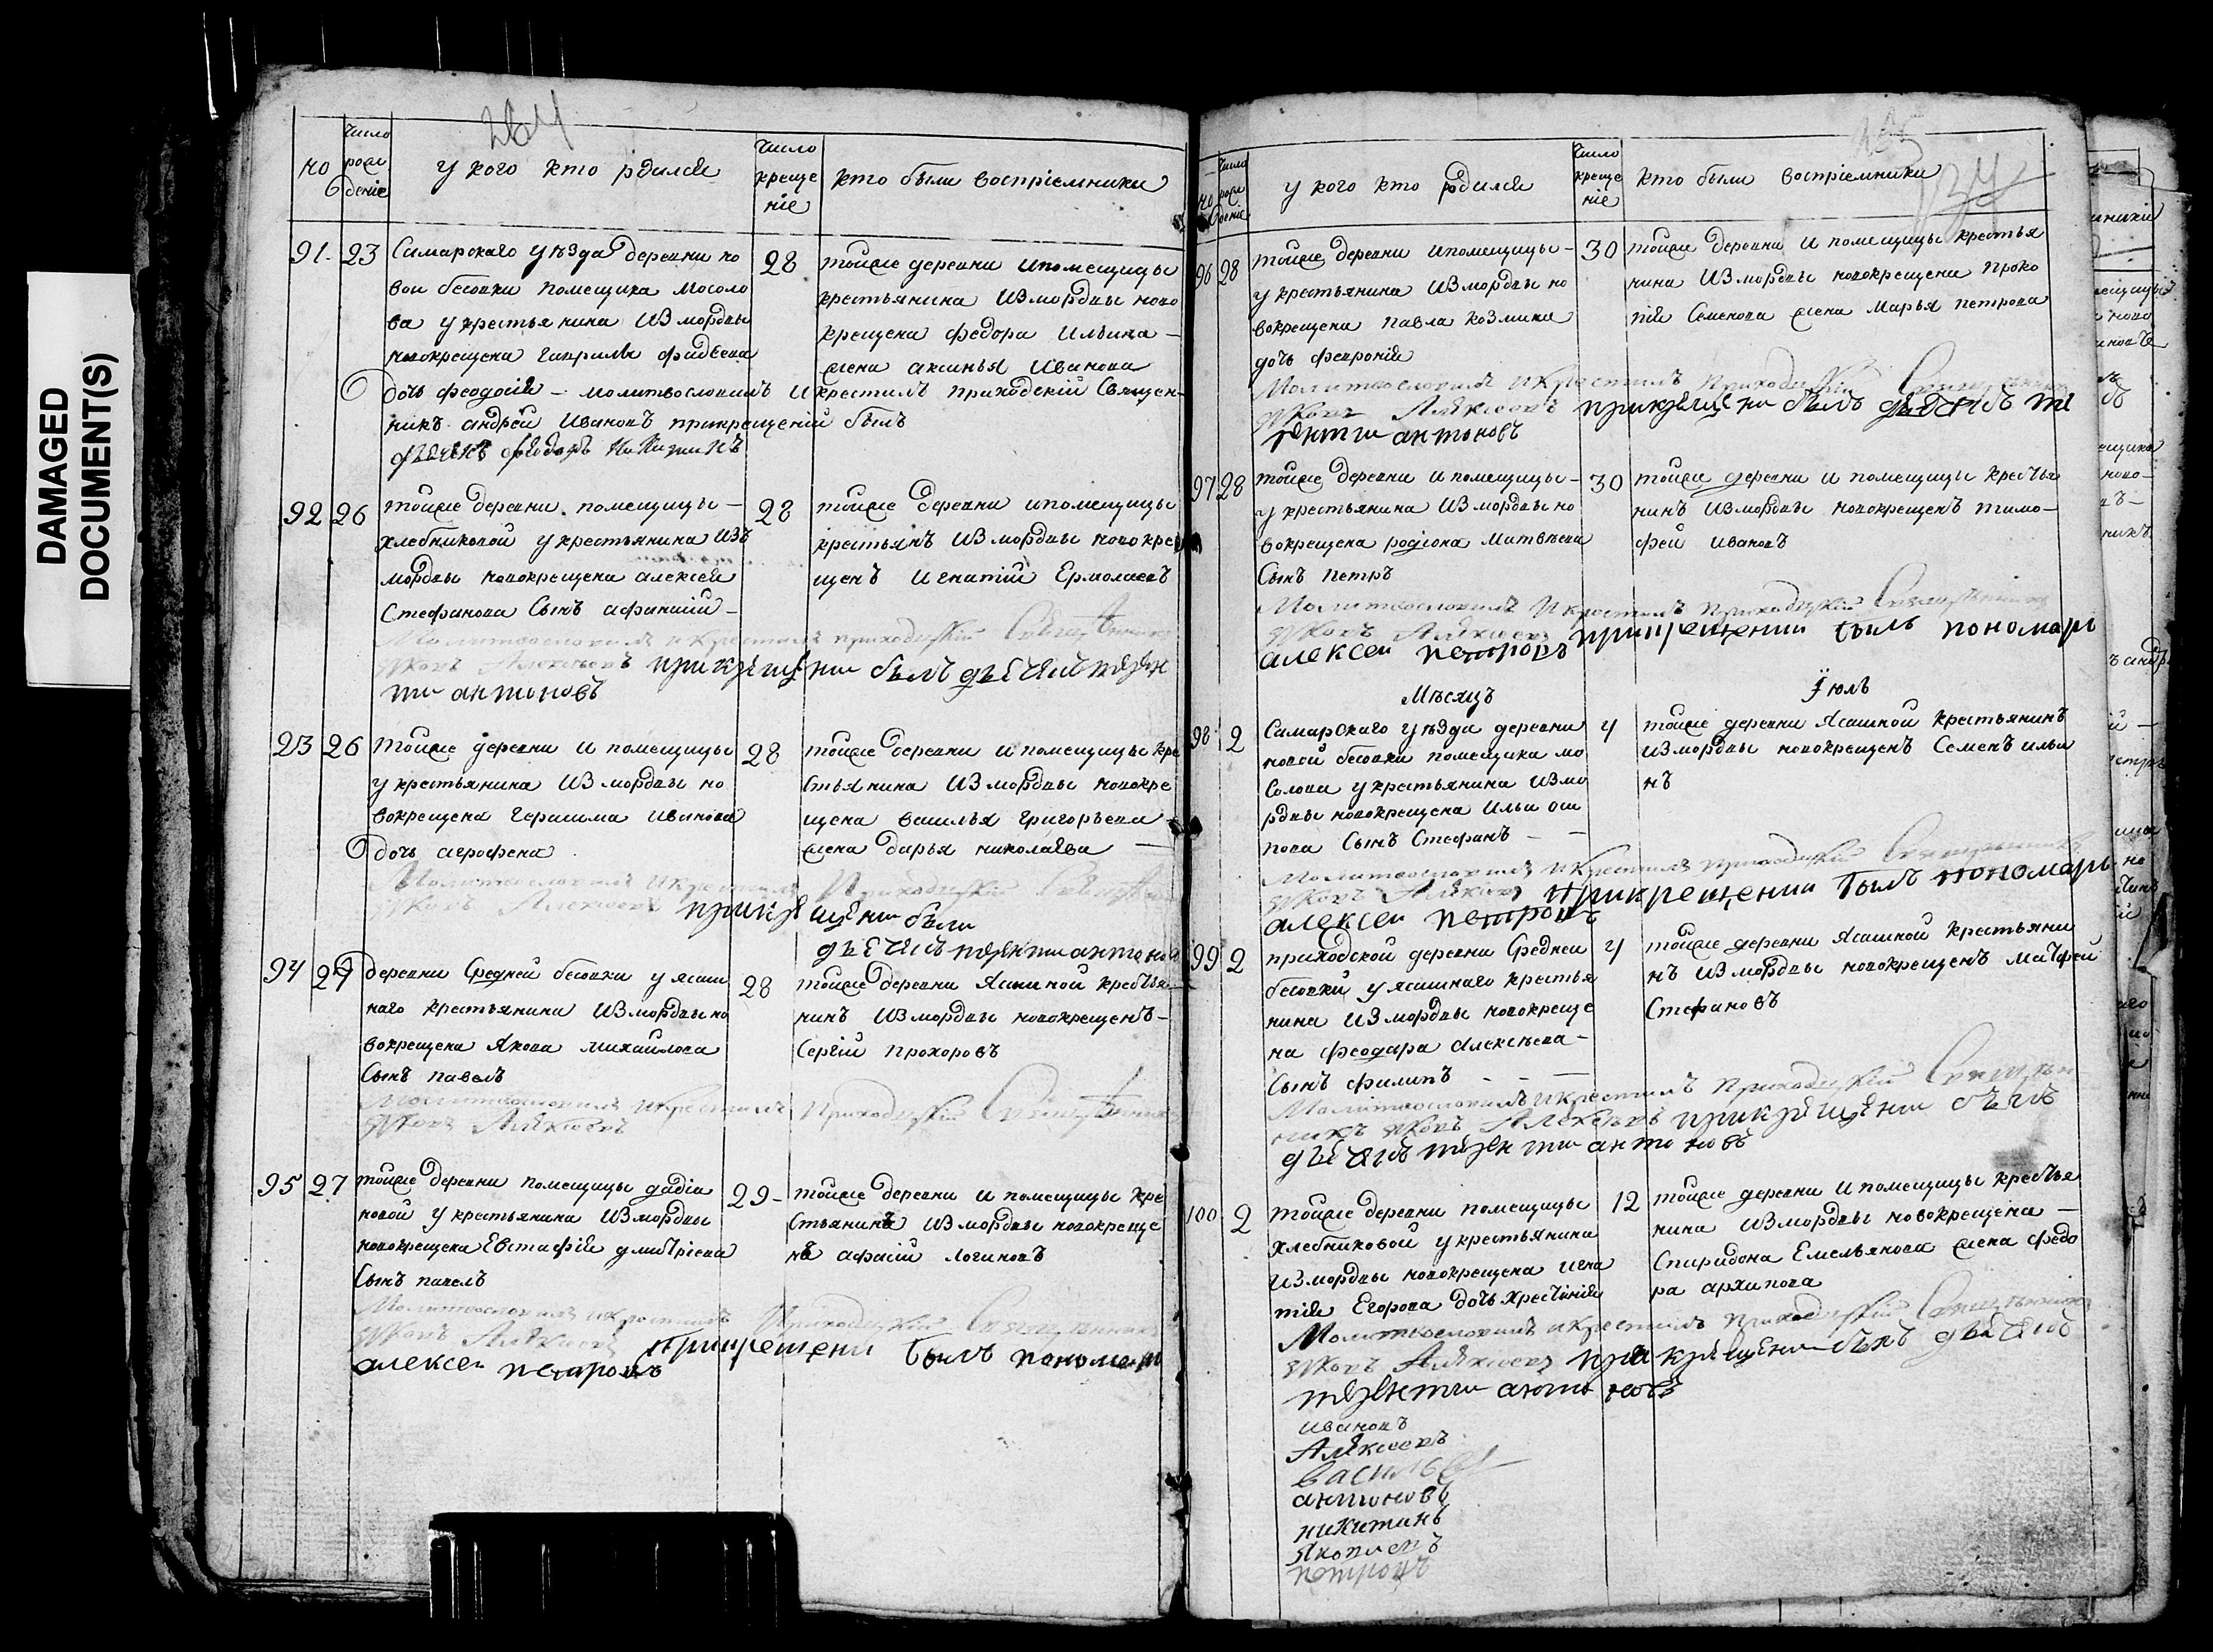 DAMAGED
DOCUMENT(S)
264
но
число рождение
у кого кто рдился
число крещение
кто были восприемники
91.
23
Самарскаго уѣзда деревни но
вои бесовки помещика Мосоло
ва у крестьянина из мордвы
новокрещена гаврилы фадѣева
дочь феодосія – молитвословилъ и крестилъ приходскій Священ-
никъ андрей Ивановъ прикрещеніи былъ
дьячекъ федоръ Никитинъ
28
тойже деревни и помещицы
крестьянина из мордвы ново
крещена федора Ильина –
жена аксинья Иванова
92
26
тойже деревни помещицы –
хлебниковой у крестьянина изъ
мордвы новокрещена алексея
Стефанова Сынъ афанасий –
Молитвословилъ и крестилъ приходскій Священникъ
яковъ Алексеевъ при крещени былъ дьечекъ терен
ти антоновъ
28
тойже деревни и помещицы
крестьянъ из мордвы новокре
щенъ игнатий Ермолаевъ
93
26
тойже деревни и помещицы
у крестьянина из мордвы но
вокрещена герасима иванова
дочь агрофена
Молитвословилъ и крестилъ Приходскій Священникъ
яковъ Алексеевъ при крещени были
дьечекъ теренти антонов
28
тойже деревни и помещицы кре
стьянина из мордвы новокре
щена василья григорьева
жена дарья николаева —
94
27
деревни Средней бесовки у ясаш
наго крестьянина из мордвы но
вокрещена Якова михаилова
Сынъ павелъ
Молитвословилъ и крестилъ Приходскій Священникъ
яковъ Алексеевъ
28
тойже деревни Ясашной крестья
нинъ из мордвы новокрещенъ –
Сергій прохоровъ
95
27
тойже деревни помещицы
новой у крестьянина из мордвы
новокрещена Евстафія дмитріева
Сынъ павелъ
Молитвословилъ и крестилъ Приходскій Священникъ
яковъ Алексеевъ прикрещени былъ пономарь
алексеи петровъ
29-
тойже деревни и помещицы кре
стьянинъ из мордвы новокреще
нъ афасій логиновъ
265
134
но
число рождение
у кого кто родился
число крещение
кто были восприемники
96
28
тойже деревни и помещицы –
у крестьянина из мордвы но
вокрещена павла козмина
дочь феврония
Молитвословилъ и крестилъ Приходскій Священникъ
яковъ Алексеевъ прикрещени былъ дьечекъ те
ренти антоновъ
30
тойже деревни и помещицы крестья
нина из мордвы новокрещена проко
пія Семенова жена Марья петрова
97
28
тойже деревни и помещицы –
у крестьянина из мордвы но
вокрещена родіона матвѣева
Сынъ петръ
Молитвословилъ и крестилъ приходскій Священникъ
яковъ Алексеевъ прикрещении былъ пономарь
алексеи петровъ
30
тойже деревни и помещицы крестья
нинъ из мордвы новокрещенъ тимо–
фей ивановъ
Мѣсяцъ
Іюль
98
2
Самарскаго уѣзда деревни
новой бесовки помещика мо
солова у крестьянина из мо
рдвы новокрещена ильи оси
пова Сынъ Стефанъ – –
Молитвословилъ и крестилъ приходскій Священникъ
яковъ Алексеевъ прикрещении былъ пономарь
алексеи петровъ
4
тойже деревни Ясашной крестьянинъ
из мордвы новокрещенъ Семенъ ильи
нъ
99
2
приходской деревни Средней
бесовки у ясашнаго крестья
нина из мордвы новокреще
на феодара алексѣева –
Сынъ филипъ – – —
Молитвословилъ и крестилъ Приходскій Священ
никъ яковъ Алексеевъ прикрещени былъ
дьечекъ теренти антоновъ
4
тойже деревни Ясашной крестьяни
нъ из мордвы новокрещенъ матфей
Стефановъ
100
2
тойже деревни помещицы
хлебниковой у крестьянина
из мордвы новокрещена игна
тия Егорова дочь Христинія
Молитвословилъ и крестилъ Приходскій Священникъ
яковъ Алексеевъ при крещени былъ дьечекъ
теренти антоновъ
12
тойже деревни и помещицы крестья
нина из мордвы новокрещена –
Спиридона Емельянова жена федо
ра архипова
ивановъ
Алексеевъ
васильев
антоновъ
никитинъ
Яковлевъ
петровъ